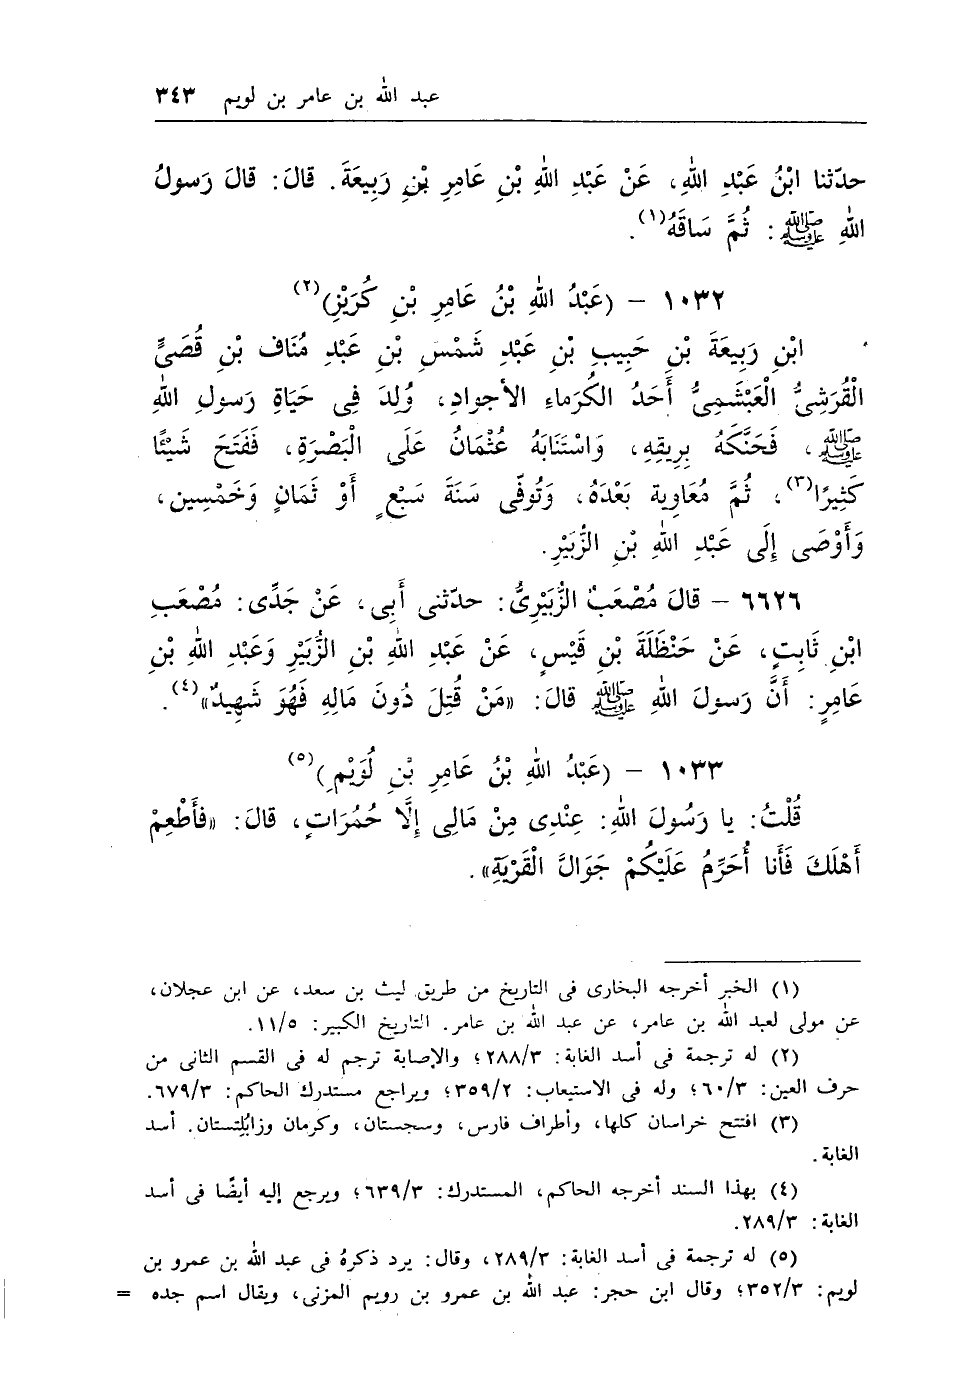 عبد الله بن عامر بن لويم ٣٤٣
حدّثنا ابْنُ عَبْدِ اللهِ، عَنْ عَبْدِ اللهِ بْنِ عَامِرِ بْنِ رَبِيعَةَ. قالَ: قالَ رَسولُ
اللهِ ﷺ: ثُمَّ سَاقَهُ(١).
١٠٣٢ – (عَبْدُ اللهِ بْنُ عَامِرِ بْنِ كُرَيْزِ)(٢)
ابْنِ رَبِيعَةَ بْنِ حَبِيبِ بْنِ عَبْدِ شَمْسِ بْنِ عَبْدِ مُنَاف بْنِ قُصَىٍّ
الْقُرَشِىُّ الْعَبْشَمِىُّ أَحَدُ الكُرَماءِ الأجوادِ، وُلِدَ فِى حَيَاةِ رَسولِ اللهِ
ﷺ، فَحَنَّكَهُ بِرِيقِهِ، وَاسْتَنَابَهُ عُثْمَانُ عَلَى الْبَصْرَةِ، فَفَتَحَ شَيْئًا
كَثِيرًا(٣)، ثُمَّ مُعَاوِية بَعْدَهُ، وَتُوفِّى سَنَةَ سَبْعٍ أَوْ ثَمَانٍ وَخَمْسِين،
وَأَوْصَى إِلَى عَبْدِ اللهِ بْنِ الزُّبَيْرِ.
٦٦٢٦ – قالَ مُصْعَبٌ الزُّبَيْرِىُّ: حدّثنى أَبِى، عَنْ جَدِّى: مُصْعَبِ
ابْنِ ثَابِتٍ، عَنْ حَنْظَلَةَ بْنِ قَيْسٍ، عَنْ عَبْدِ اللهِ بْنِ الزُّبَيْرِ وَعَبْدِ اللهِ بْنِ
عَامِرٍ: أَنَّ رَسولَ اللهِ ﷺ قالَ: «مَنْ قُتِلَ دُونَ مَالِهِ فَهُوَ شَهِيدٌ»(٤).
١٠٣٣ – (عَبْدُ اللهِ بْنُ عَامِرِ بْنِ لُوَيْمِ)(٥)
قُلْتُ: يا رَسُولَ اللهِ: عِنْدِى مِنْ مَالِى إِلَّا حُمُرَاتٍ، قالَ: «فأَطْعِمْ
أَهْلَكَ فَأَنا أُحَرِّمُ عَلَيْكُمْ جَوَالَّ الْقَرْيَةِ».
(١) الخبر أخرجه البخارى فى التاريخ من طريق ليث بن سعد، عن ابن عجلان،
عن مولى لعبد الله بن عامر، عن عبد الله بن عامر. التاريخ الكبير: ١١/٥.
(٢) له ترجمة فى أسد الغابة: ٢٨٨/٣؛ والإصابة ترجم له فى القسم الثانى من
حرف العين: ٦٠/٣؛ وله فى الاستيعاب: ٣٥٩/٢؛ ويراجع مستدرك الحاكم: ٦٧٩/٣.
(٣) افتتح خراسان كلها، وأطراف فارس، وسجستان، وكرمان وزابُلِستان. أسد
الغابة.
(٤) بهذا السند أخرجه الحاكم، المستدرك: ٦٣٩/٣؛ ويرجع إليه أيضًا فى أسد
الغابة: ٢٨٩/٣.
(٥) له ترجمة فى أسد الغابة: ٢٨٩/٣، وقال: يرد ذكرهُ فى عبد الله بن عمرو بن
لويم: ٣٥٢/٣؛ وقال ابن حجر: عبد الله بن عمرو بن رويم المزنى، ويقال اسم جده =